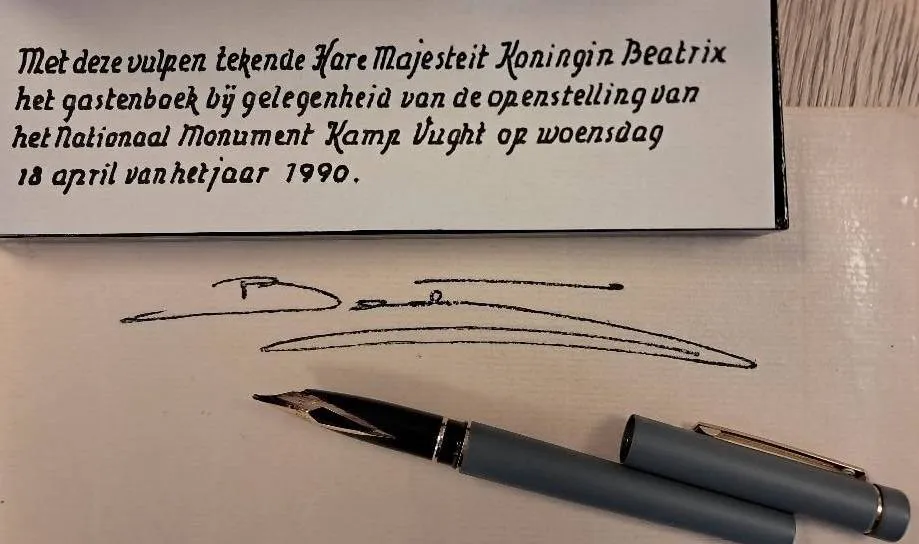 Met deze vulpen tekende Hare Majesteit Koningin Beatrix
het gastenboek bij gelegenheid van de openstelling van
het Nationaal Monument Kamp Vught op woensdag
18 april van het jaar 1990.
Beatrix